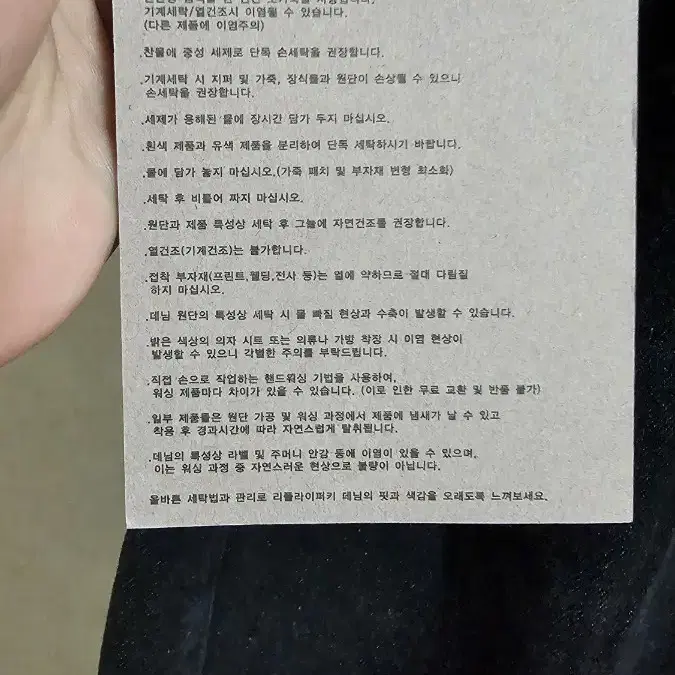 기계세탁/열건조시 이염될 수 있습니다.
(다른 제품에 이염주의)
.찬물에 중성 세제로 단독 손세탁을 권장합니다.
.기계세탁 시 지퍼 및 가죽, 장식들과 원단이 손상될 수 있으니
손세탁을 권장합니다.
.세제가 용해된 물에 장시간 담가 두지 마십시오.
.흰색 제품과 유색 제품을 분리하여 단독 세탁하시기 바랍니다.
.물에 담가 놓지 마십시오.(가죽 패치 및 부자재 변형 최소화)
.세탁 후 비틀어 짜지 마십시오.
.원단과 제품 특성상 세탁 후 그늘에 자연건조를 권장합니다.
.열건조(기계건조)는 불가합니다.
.접착 부자재(프린트,웰딩,전사 등)는 열에 약하므로 절대 다림질
하지 마십시오.
.데님 원단의 특성상 세탁 시 물 빠짐 현상과 수축이 발생할 수 있습니다.
.밝은 색상의 의자 시트 또는 의류나 가방 착장 시 이염 현상이
발생할 수 있으니 각별한 주의를 부탁드립니다.
.직접 손으로 작업하는 핸드워싱 기법을 사용하여,
워싱 제품마다 차이가 있을 수 있습니다. (이로 인한 무료 교환 및 반품 불가)
.일부 제품들은 원단 가공 및 워싱 과정에서 제품에 냄새가 날 수 있고
착용 후 경과시간에 따라 자연스럽게 탈취됩니다.
.데님의 특성상 라벨 및 주머니 안감 등에 이염이 있을 수 있으며,
이는 워싱 과정 중 자연스러운 현상으로 불량이 아닙니다.
올바른 세탁법과 관리로 리플라이퍼키 데님의 핏과 색감을 오래도록 느껴보세요.